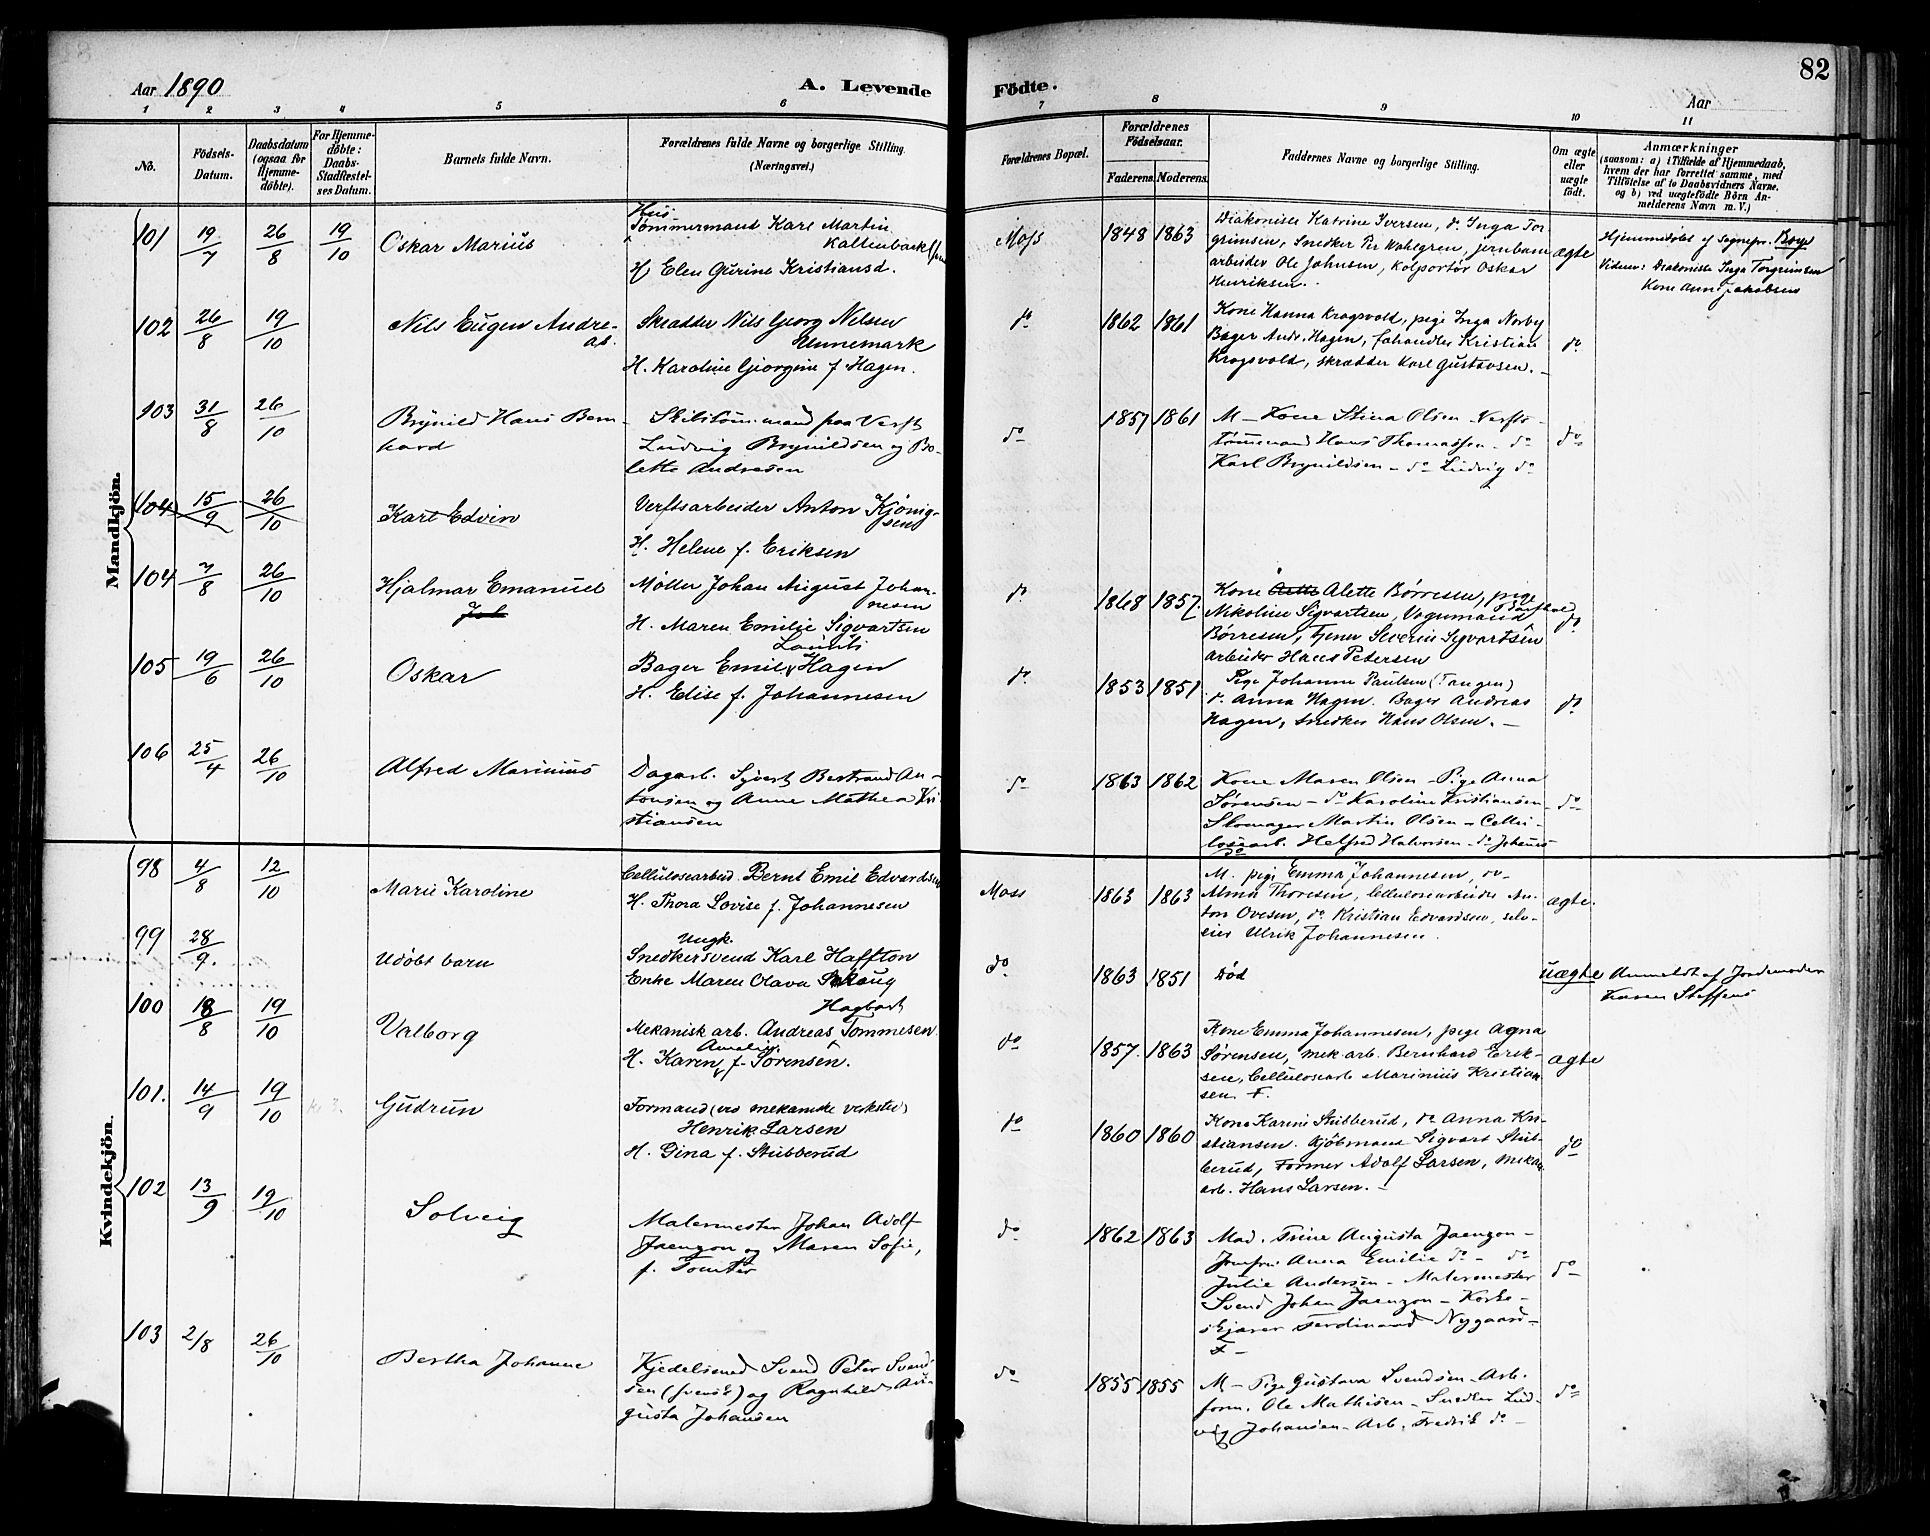 Aar 1890
A. Levende
Födte.
Aar
82
1 2 3 4 5 6 7 8 9 10 11
No.
Födsels-
Datum.
Daabsdatum
(ogsaa for
Hjemme-
döbte).
For Hjemme-
döbte:
Daabs-
Stadfæstel-
ses Datum.
Barnets fulde Navn.
Forældrenes fulde Navne og borgerlige Stilling.
(Næringsvei.)
Forældrenes Bopæl.
Forældrenes
Födselsaar.
Faderens. Moderens.
Faddernes Navne og borgerlige Stilling.
Om ægte
eller
uægte
födt.
Anmærkninger
(saasom: a) i Tilfælde af Hjemmedaab,
hvem der har forrettet samme, med
Tilföielse af to Daabsvidners Navne.
og b) ved uægtefödte Börn An-
melderens Navn m. V.)
Mandkjön.
101 19/7 26/8 19/10 Oskar Marius
Hus
Tømmermand Karl Martin
Kaltenback
H. Elen Gurine Kristiansd.
Moss 1848 1863
Diakonisse Katrine Iversen, do Inga Tor-
grimsen, Snedker Per Wahlgren, jernbane
arbeider Ole Johnsen, Kolportør Oskar
Henriksen.
ægte
Hjemmedøbt af Sognepr. Bøye
Vidner: Diakonisse Inga Torgrimsen
Kone Anne Jakobsen
102 26/8 19/10 Nils Eugen Andre-
as.
Skrædder Nils Georg Nilsen
Unnemark
H. Karoline Georgine f. Hagen.
do 1862 1861
Kone Hanna Krogsvold, pige Inga Norby
Bager Andr. Hagen, fehandler Kristian
Krogsvold, skrædder Karl Gustavsen.
do
103 31/8 26/10 Brynild Hans Bern-
hard
Skibstømmermand paa Verft
Ludvig Brynildsen og Bo-
lette Andresen
do 1857 1861
M - Kone Stina Olsen - Verfts-
tømmermand Hans Thomassen - do
Karl Brynildsen - do Ludvig do
do
104 15/9 26/10 Karl Edvin
Verftsarbeider Anton Kjønig-
sen
H. Helene f. Eriksen
104 7/8 26/10 Hjalmar Emanuel
Joh
Møller Johan August Johan-
nesen
H. Maren Emilie Sigvartsen
do 1868 1857.
Kone Alette Børresen, pige
Nikoline Sigvartsen, Vognmand
Børresen, tjener Severin Sigvartsen
arbeider Hans Petersen
do
105 19/6 26/10 Oskar
Laurits
Bager Emil Hagen
H. Elise f. Johannesen
do 1853 1851
Pige Johanne Paulsen (Tangen)
do Anna Hagen. Bager Andreas
Hagen, snedker Hans Olsen.
do
106 25/4 26/10 Alfred Marinius
Dagarb. Sivert Bertrand An-
tonsen og Anne Mathea Kri-
stiansen
do 1863 1862
Kone Maren Olsen - Pige Anna
Sørensen - do Karoline Kristiansen
Skomager Martin Olsen - Cellu-
losearb. Helfred Halvorsen - do Johannes
do
do
Kvindekjön.
98 4/8 12/10 Marie Karoline
Cellulosearbeid. Bernt Emil Edvardsen
H. Thora Lovise f. Johannesen
Moss 1863 1863
M. pige Emma Johannesen, do
Alma Thoresen, Cellulosearbeider An-
ton Ovesen, do Kristian Edvardsen, selv-
eier Ulrik Johannesen.
ægte.
99 28/9. Udøbt barn
Ungk.
Snedkersvend Karl Haffton
Enke Maren Olava Skaug
do 1863 1851
Død
uægte
Anmeldt af Jordemoder
Karen Steffens
100 18/8 19/10 Valborg
Hagbart
Mekanisk arb. Andreas Tommesen
Amalie
H. Karen f. Sørensen.
do 1857. 1863
Kone Emma Johannesen, pige Agna
Sørensen, mek. arb. Bernhard Erik-
sen, Cellulosearb. Marinius Kristian
sen. F.
ægte
101. 14/9 19/10 Gudrun
Formand (ved mekaniske verksted)
Henrik Larsen
H. Gina f. Stubberud
do 1860 1860
Kone Karine Stubberud, do Anna Kri-
stiansen. Kjøbmand Sigvart Stub-
berud, Former Adolf Larsen, mekan
arb. Hans Larsen.
do
102 13/9 19/10 Solveig
Malermester Johan Adolf
Jaenzon og Maren Sofie,
f. Tomter
do 1862 1863
Mad. Trine Augusta Jaenzon -
Jomfru Anna Emilie do - do
Julie Andersen - Malermester
Svend Johan Jaenzon - Korke-
skjærer Ferdinand Nygaard -
F -
do
103 2/8 26/10 Bertha Johanne
Kjedelsmed Svend Peter Svend-
sen (svensk) og Ragnhild Au-
gusta Johansen
do 1855 1855
M - Pige Gustava Svendsen - Arb.
form. Ole Mathisen - Snedker Lud-
vig Johansen - Arb. Fredrik do -
do